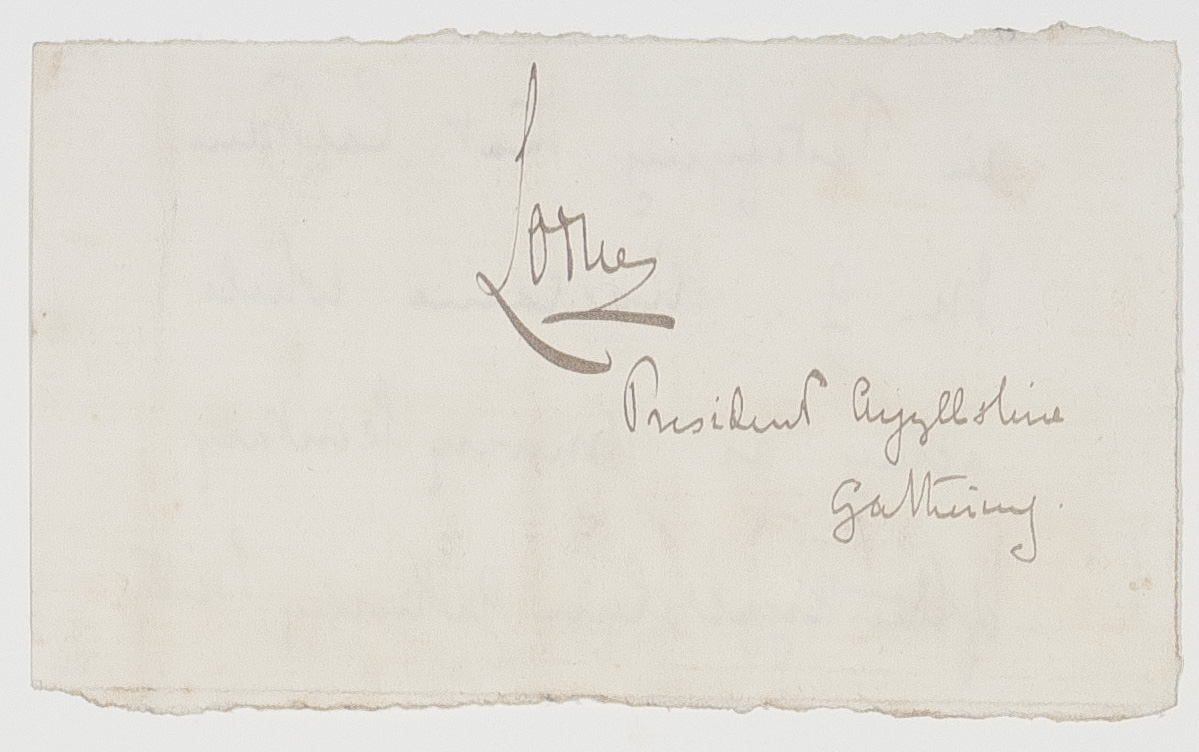 Lorne
President Argyllshire
Gathering.